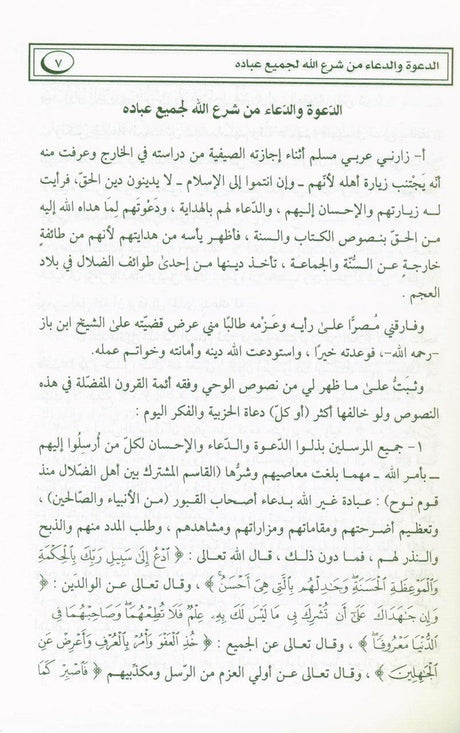 الدعوة والدعاء من شرع الله لجميع عباده
٧
الدَعوة والدَعاء من شرع الله لجميع عباده
أ- زارني عربي مسلم أثناء إجازته الصيفية من دراسته في الخارج وعرفت منه
أنَّه يَجْتنب زيارة أهله لأنَّهم ـ وإن انتموا إلى الإسلام ـ لا يدينون دين الحقّ، فرأيت
لـه زيـارتهم والإحسان إليـهم ، والدَّعاء لهم بالهداية ، ودَعْوتَهم لِمَا هداه الله إليه
مـن الحـقّ بنـصوص الكتاب والسنة ، فأظـهر يأسه من هدايتهم لأنهم من طائفةٍ
خارجةٍ عـن السُّنَّة والجماعـة ، تأخـذ دينـها من إحدىٰ طوائف الضلال في بلاد
العجم .
وفارقني مُـصرًّا علىٰ رأيـه وعَـزْمه طالبًا مني عرض قضيَّته علىٰ الشيخ ابن باز
-رحمه الله-، فوعدته خيرًا ، واستودعت الله دينه وأمانته وخواتـم عمله.
وثـبتُّ علىٰ ما ظهر لي من نصوص الوحي وفقه أئمة القرون المفضّلة في هذه
النصوص ولو خالفها أكثر (أو كلّ) دعاة الحزبية والفكر اليوم :
١- جمـيع المرسلين بذلـوا الدَّعـوة والدَّعاء والإحسان لكلّ من أُرسلُوا إليـهم
ــ بأمـر الله ــ مهمـا بلغت معاصيهم وشرُّها (القاسم المشترك بين أهل الضلال منذ
قـوم نـوح) : عبـادة غـير الله بدعاء أصحاب القبور (من الأنبياء والصَّالحين) ،
وتعظيـم أضـرحتهم ومقاماتهم ومزاراتهم ومشاهدهم ، وطلب المدد منهم والذبح
والنـذر لهـم ، فمـا دون ذلـك ، قـال الله تعالى : ﴿ ٱدْعُ إِلَىٰ سَبِيلِ رَبِّكَ بِٱلْحِكْمَةِ
وَٱلْمَوْعِظَةِ ٱلْحَسَنَةِ ۖ وَجَٰدِلْهُم بِٱلَّتِى هِىَ أَحْسَنُ ۚ ﴾ ، وقـال تعالى عن الوالدَين : ﴿
وَإِن جَٰهَدَاكَ عَلَىٰٓ أَن تُشْرِكَ بِى مَا لَيْسَ لَكَ بِهِۦ عِلْمٌ فَلَا تُطِعْهُمَا ۖ وَصَاحِبْهُمَا فِى
ٱلدُّنْيَا مَعْرُوفًا ۖ ﴾ ، وقـال تعالى عن الجميع : ﴿ خُذِ ٱلْعَفْوَ وَأْمُرْ بِٱلْعُرْفِ وَأَعْرِضْ عَنِ
ٱلْجَٰهِلِينَ ﴾ ، وقـال تعالى عن أولي العزم من الرّسل ومكذّبيهم ﴿ فَٱصْبِرْ كَمَا